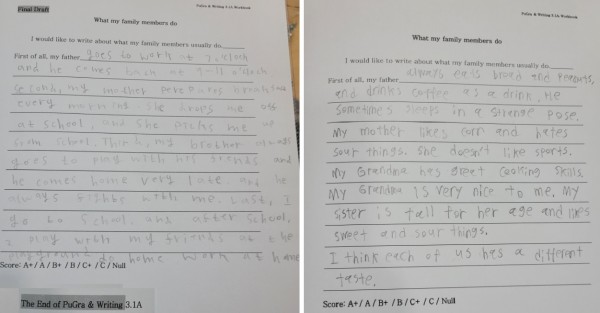 Final Draft
PuGra & Writing 3.1A Workbook
What my family members do
I would like to write about what my family members usually do.
First of all, my father goes to work at 7 o'clock
and he comes back at 9~11 o'clock
Second, my mother prepares breakfast
every morning. She drops me off
at school, and she picks me up
from school. Third, my brother always
goes to play with his friends and
he comes home very late, and he
always fights with me. Last, I
go to school, and after school,
I play with my friends at the
playground, do home work at home
Score: A+ / A / B+ / B / C+ / C / Null
The End of PuGra & Writing 3.1A
PuGra & Writing 3.1A Workbook
What my family members do
I would like to write about what my family members usually do.
First of all, my father always eats bread and peanuts,
and drinks coffee as a drink. He
Sometimes sleeps in a strange pose.
My mother likes corn and hates
sour things. She doesn't like sports.
My Grandma hes greet cooking skills
My Grandma is very nice to me. My
sister is tall for her age and likes
sweet and sour things.
I think each of us has a different
taste.
Score: A+ / A / B+ / B / C+ / C / Null